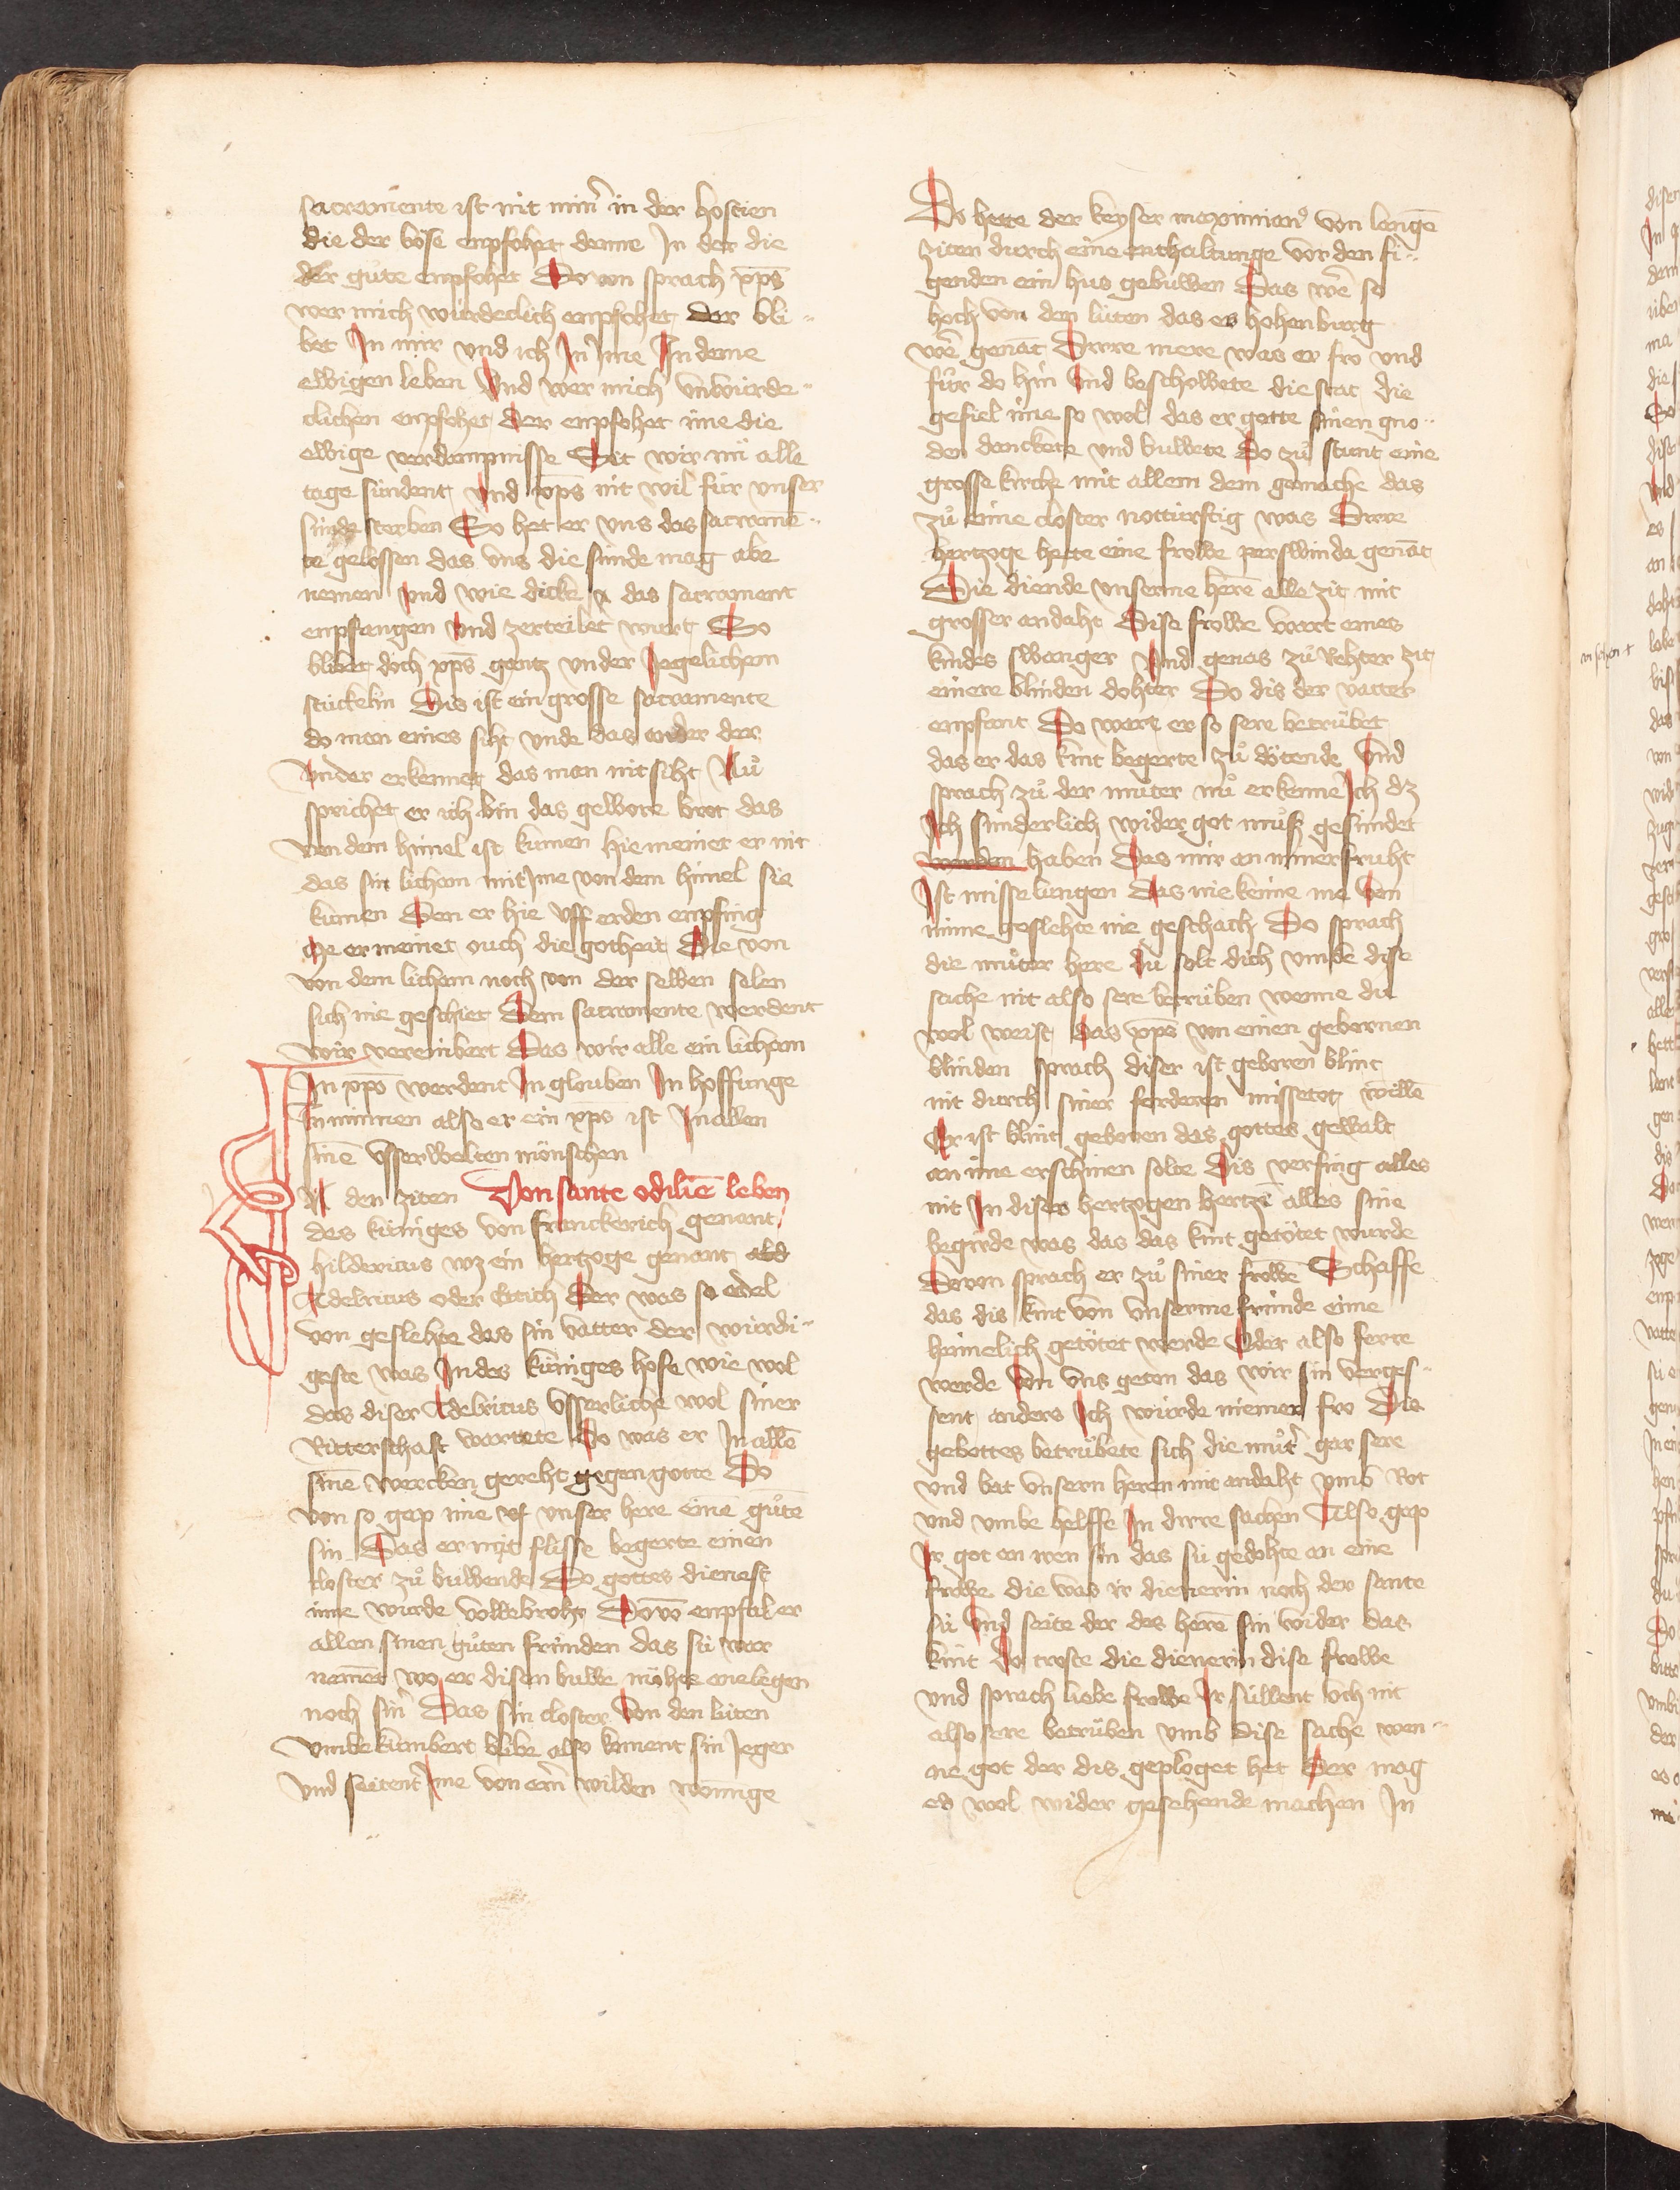 sacramente ist nit minr̄ in der hostien
die der böse enpfohet denne In der die
der gůte empfohet Do von sprach xp̄s
wer mich wúrdeclich empfohet der bli-
bet In mir vnd ich In Ime In deme
ewigen leben Vnd wer mich vnwúrde-
clichen enpfohet der enpfohet ime die
ewige verdampnisse Sit wir nů alle
tage súndent vnd xp̄s nit wil fúr vnser
súnde sterben So het er vns das sacramē-
te gelossen das vns die súnde mag abe
nemen vnd wie dicke das sacrament
enpfangen vnd zerteilet wurt So
blibet doch xp̄s gentz vnder Iegelichem
stúckelin Dis ist ein grosse sacramente
do man eines siht vnde das ander der
Ander erkennet das man nit siht Nů
sprichet er ich bin das gewore brot das
von dem himel ist kumen hie meinet er nit
das sin lichem mit Ime von dem himel sie
kumen Den er hie vff erden enpfing
Me er meinet ouch die gotheit Die von
von dem lichem noch von der selben selen
sich nie geschiet Dem sacramente werdent
wir vereinbert Das wir alle ein lichem
In xp̄o werdent In glouben In hoffunge
In minnen also er ein xp̄s ist In allen
sinē vsserwelten mönschen
Von sante odiliē leben
IN den ziten
des kúniges von franckerich genant
hildericus wz ein hertzoge genant
Adelricus oder Ettich Der was so edel
von geslehte das sin vatter der wúrdi-
geste was In des kúniges hofe wie wol
das diser Adelricus vsserliche wol siner
Ritterschaft wartete Do was er In allē
sinē wercken gereht gegen gotte Do
von so gap ime vnser here einē gůtē
sin Das er mit flisse begerte einen
closter zů buwende Do gottes dienest
inne wurde vollebroht Dovō enpfal er
allen sinen gůten frúnden das sú war
nemēt wo er disen buwe möhte ane legen
noch sinr̄ Das sin closter von den lúten
vnbekúmbert blibe also koment sin Jeger
vnd seitent Ime von eim wilden wonunge
Do hette der keyser maximian⁹ von langē
ziten durch eine enthaltunge vor den fi-
genden ein hus gebuwen Das wē so
hoch von den lúten das es hohenburg
wē genāt Dirre mere was er fro vnd
fůr do hin vnd beschowete die stat die
gefiel ime so wol das er gotte sinen gno-
den danckete vnd buwete do zů stunt eine
grosse kirche mit allem dem gemache das
zů eime closter notturftig was Dirre
hertzoge hette eine frowe perswinda genāt
Die diende vnserme herē alle zit mit
grosser andaht Dise frowe wart eines
kindes swanger vnd genas zů rehter zit
einere blinden dohter Do dis der vatter
enpfant Do wart er so sere betrúbet
das er das kint begerte zů dötende vnd
sprach zů der můter nů erkenne Ich dz
Ich súnderlich wider got můß gesúndet
werden haben Das mir an minerfruht
Ist misselungen Das nie keime me von
mime geslehte nie geschach Do sprach
die můter here du solt dich vmbe dise
sache nit also sere betrúben wenne du
wol weist das xp̄s von einen gebornen
blinden sprach diser ist geboren blint
nit durch siner forderen missetot willē
Er ist blint geboren das gottes gewalt
an ime erschinen solte Dis verfing alles
nit In dises hertzogen hertzē alles sine
begirde was das das kint getötet wurde
Dovon sprach er zů siner frowē Schaffe
das dis kint von vnserme frúnde eime
heimelich getötet werde Oder also ferre
werde von vns geton das wir sin verges-
sent anders Ich wúrde niemer fro Dis
gebottes betrúbete sich die můtr̄ gar sere
vnd bat vnsern heren mit andaht vmb Rot
vnd vmbe helffe In dirre sachen Also gap
Ir got an iren sin das sú gedohte an eine
frowe die was ir dienerin noch der sante
sú vnd seite der des herē sin wider das
kint Do troste die dienerin dise frowe
vnd sprach liebe frowe Ir súllent úch nit
also sere betrúben vmb dise sache wen-
ne got der dis geploget het Der mag
es wol wider gesehende machen In